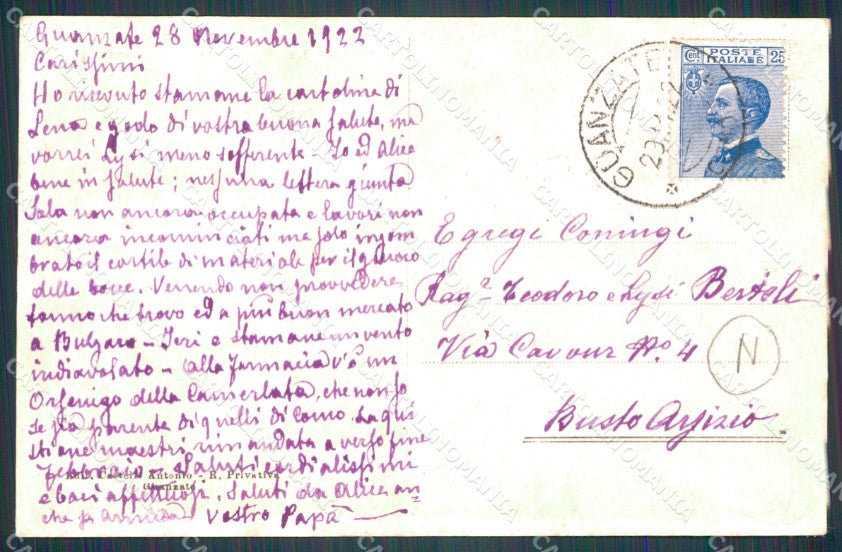 Guanzate 28 Novembre 1922
Carissimi
Ho ricevuto stamane la cartolina di
Lena e godo di vostra buona salute, ma
vorrei Lysi meno sofferente - Io ed Alice
bene in salute; nessuna lettera giunta
Sala non ancora occupata e lavori non
ancora incominciati ma solo ingom
brato il cortile di materiale per il giuoco
delle bocce. Verrendo non provvedere
formo che trovo ed a più buon mercato
a Bulgaro - Ieri e stamane un vento
indiavolato - alla farmacia v'è un
Orsenigo della Camerlata, che non so
se sia parente di quelli di Como. La qui
stione maestri rimandata a verso fine
Febbraio - Saluti cordialissimi
e baci affettuosi. Saluti da Alice an
che
Vostro Papà
Antonio - R. Privativa
Guanzate
POSTE
ITALIANE
Cent 25
GUANZATE
29 22
Egregi Coniugi
Rag.r Teodoro e Lysi Bertoli
Via Cavour No. 4
Busto Arsizio
N
CARTOLINOMANIA